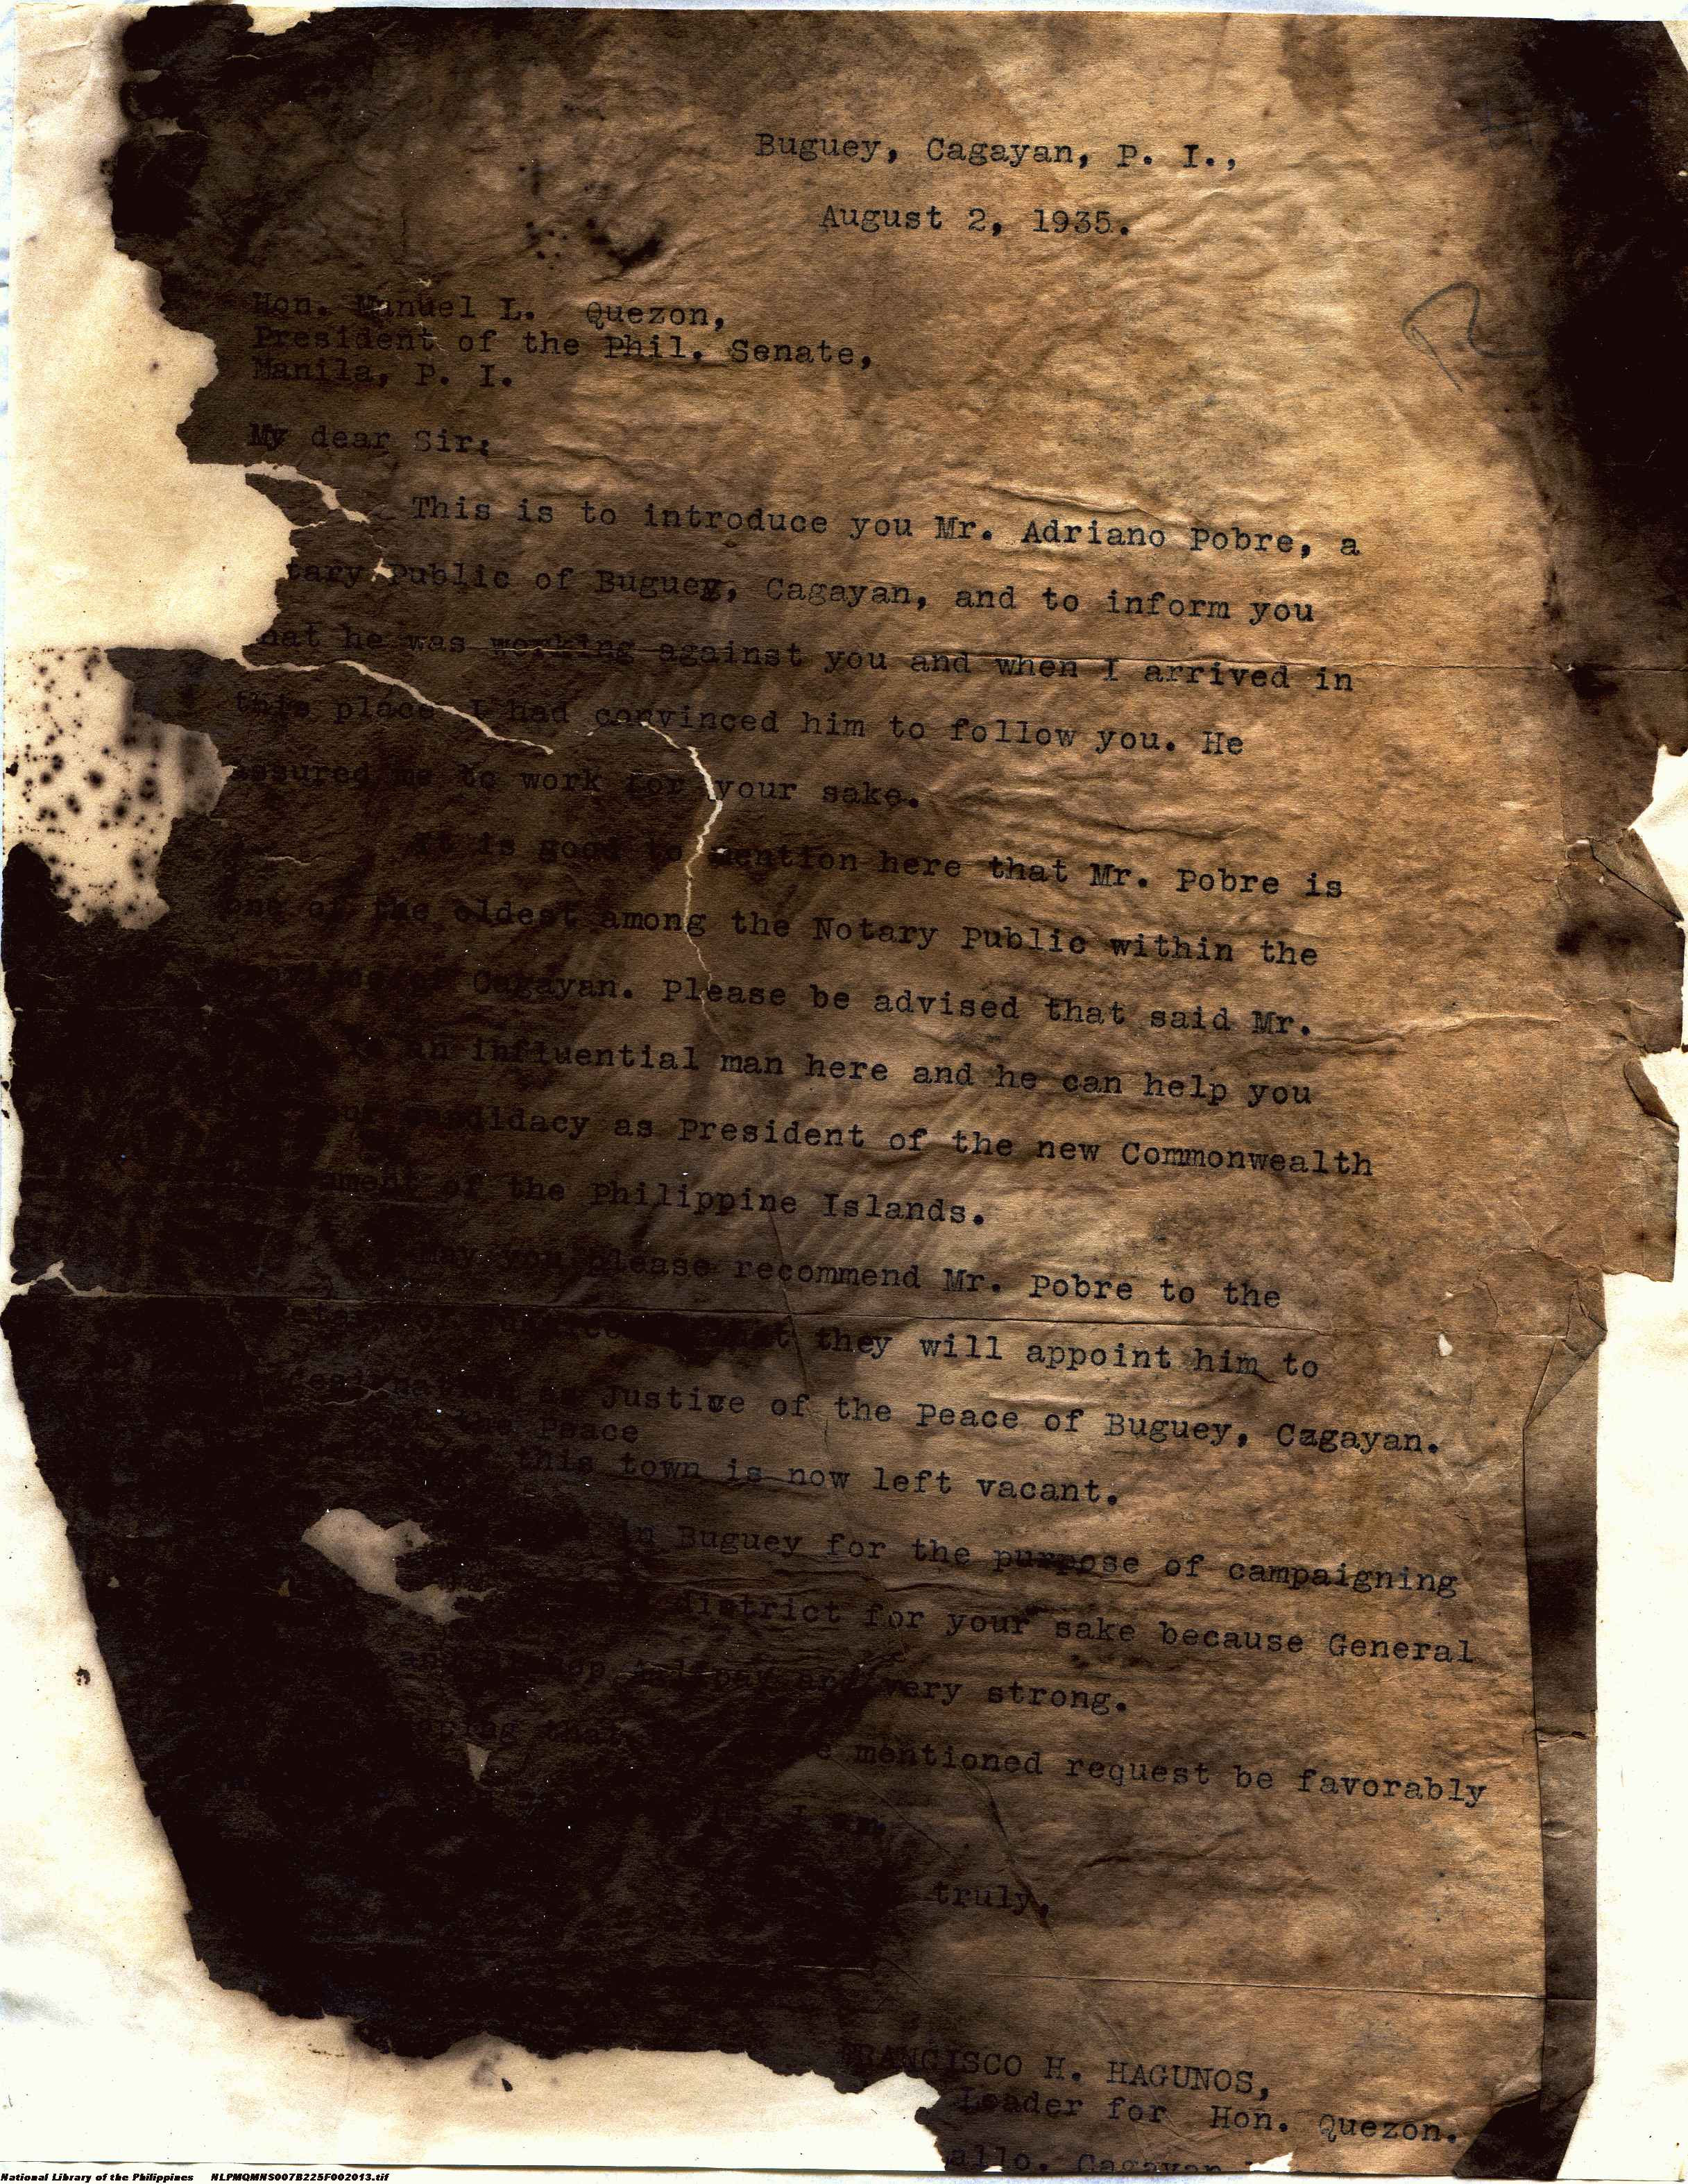 Buguey, Cagayan, P. I.,
August 2, 1935.
Hon. Manuel L. Quezon,
President of the Phil. Senate,
Manila, P. I.
My dear Sir:
This is to introduce you Mr. Adriano Pobre, a
tary Public of Buguey, Cagayan, and to inform you
hat he was working against you and when I arrived in
this place I had convinced him to follow you. He
assured me to work for your sake.
It is good to mention here that Mr. Pobre is
one of the oldest among the Notary Public within the
Cagayan. Please be advised that said Mr.
an influential man here and he can help you
candidacy as President of the new Commonwealth
ment of the Philippine Islands.
May you please recommend Mr. Pobre to the
of Justice that they will appoint him to
as Justice of the Peace of Buguey, Cagayan.
of the Peace
this town is now left vacant.
in Buguey for the purpose of campaigning
district for your sake because General
and Bishop Aglipay are very strong.
that mentioned request be favorably
I am,
truly,
FRANCISCO H. HAGUNOS,
Leader for Hon. Quezon.
allo, Cagayan
National Library of the Philippines NLPMQMNS007B225F002013.tif